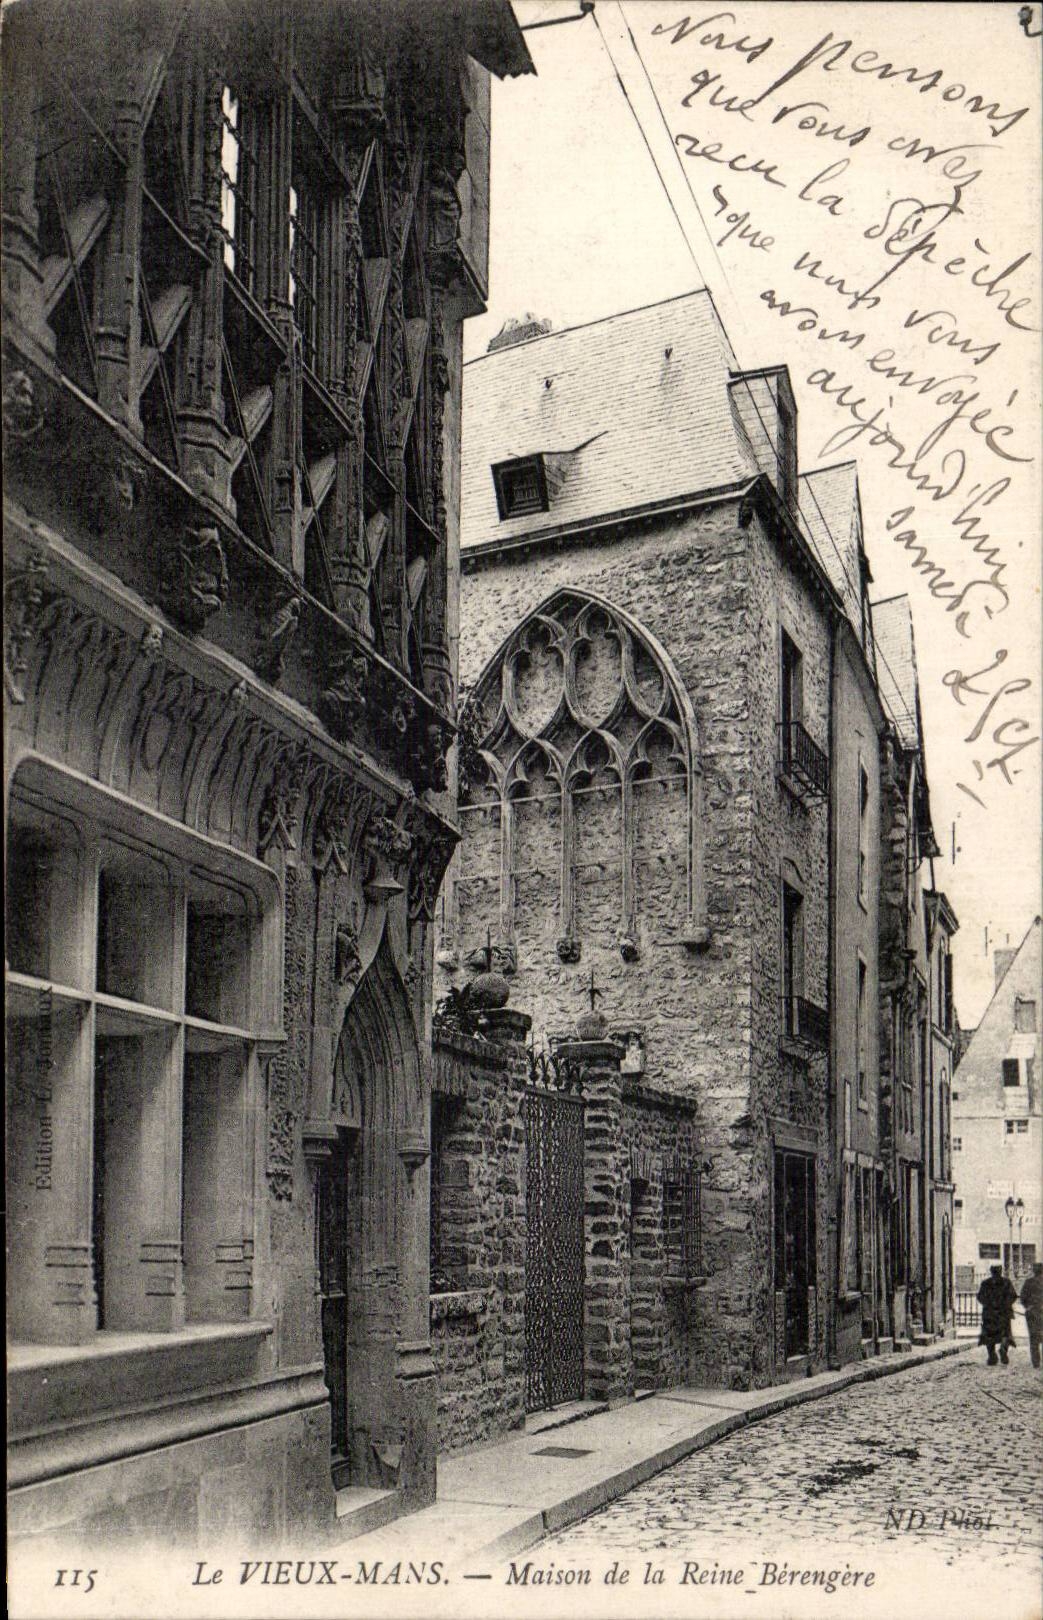 2
Nous pensons
que vous avez
recu la dépèche
que nous vous
avons envoyéé
aujourd'hui
samedi 2
Edition L. Joriaux
ND Phot.
115 Le VIEUX-MANS. — Maison de la Reine Bérengère